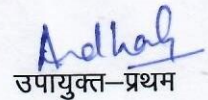 उपायुक्त–प्रथम